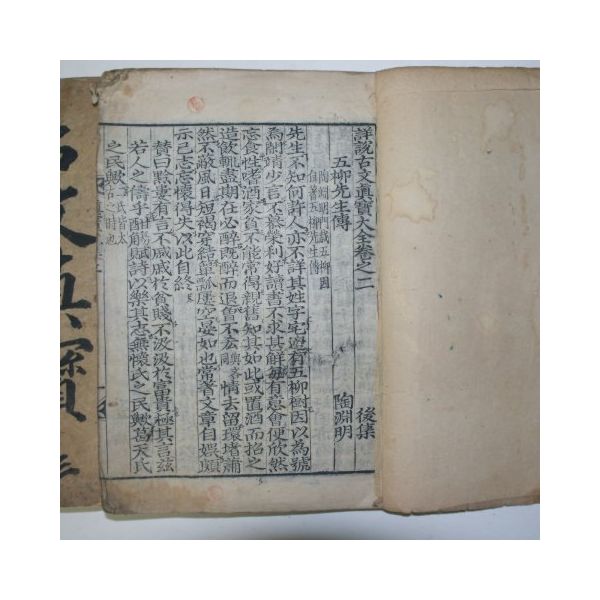 詳說古文眞寶大全卷之二
後集
五柳先生傳
陶淵明
陶淵明門栽五柳因
自著五柳先生傳
先生不知何許人亦不詳其姓字宅邊有五柳樹因以為號
焉閑靖少言不慕榮利好讀書不求甚解每有意會便欣然
忘食性嗜酒家貧不能常得親舊知其如此或置酒而招之
造飮輒盡期在必醉旣醉而退曾不吝情去留環堵蕭
然不蔽風日短褐穿結簞瓢屢空晏如也常著文章自娛頗
示己志忘懷得失以此自終
贊曰黔婁有言不戚戚於貧賤不汲汲於富貴極其言玆
若人之儔乎酣觴賦詩以樂其志無懷氏之民歟葛天氏
之民歟
古文眞寶